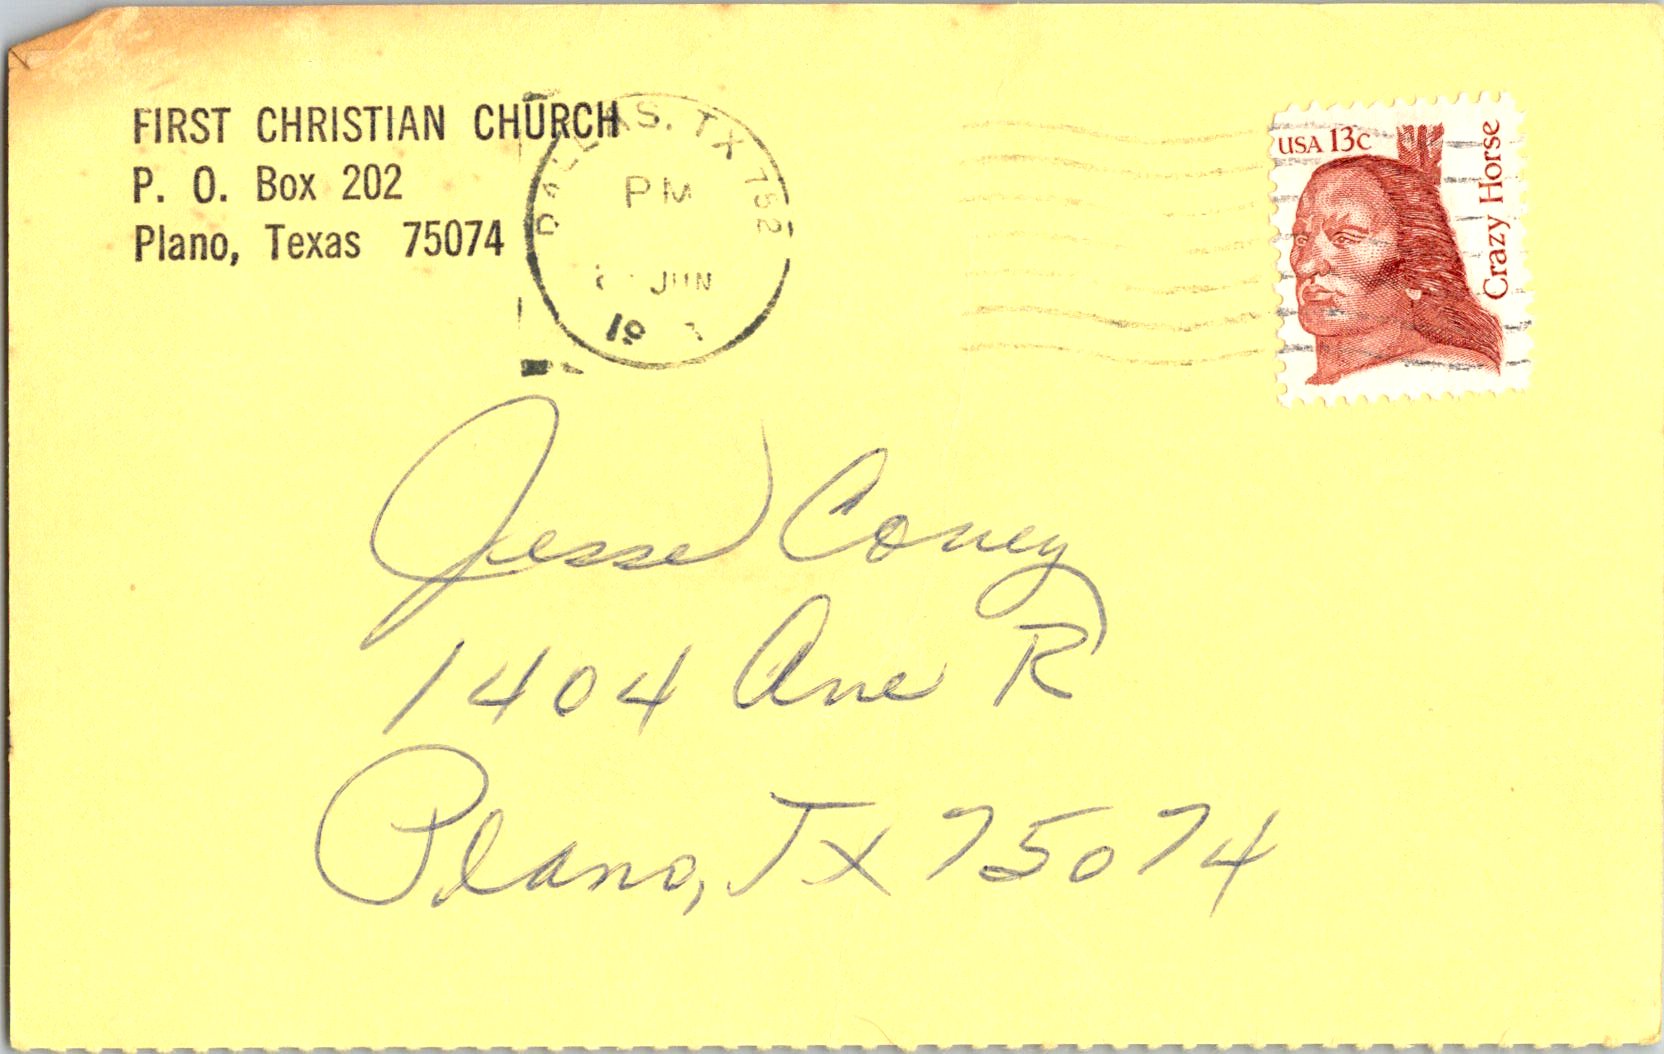 FIRST CHRISTIAN CHURCH
P. O. Box 202
Plano, Texas 75074
DALLAS, TX 752
PM
JUN
19
USA 13c
Crazy Horse
Jesse Coney
1404 Ave R
Plano, TX 75074